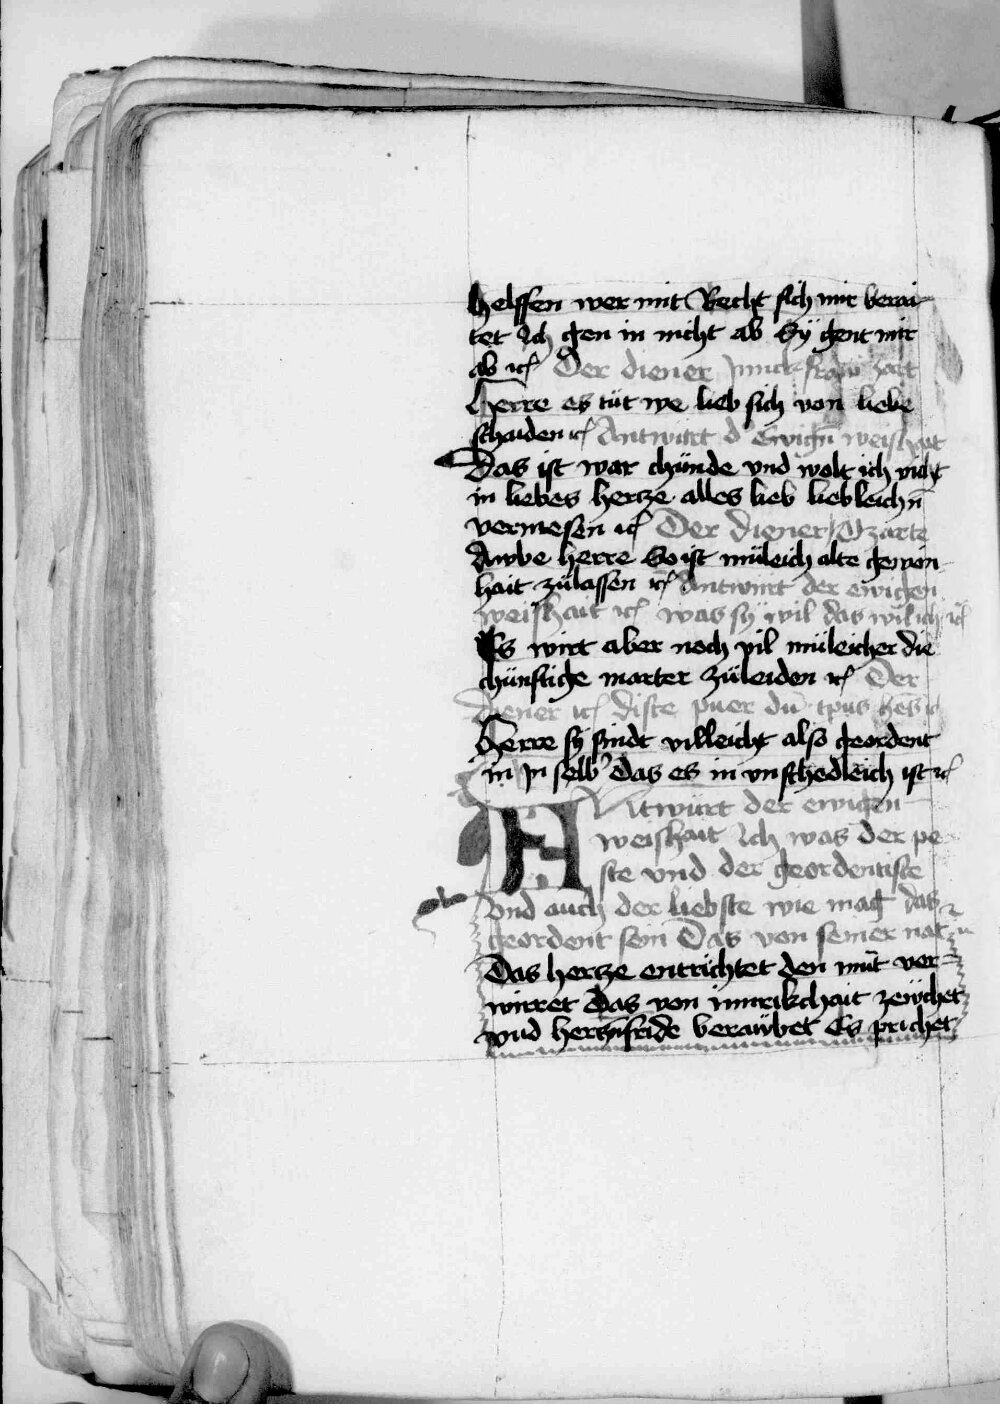 helffen wer mit Recht sich mir berai
tet Ich gen in nicht ab Sÿ gent mir
ab ꝛcͣ Der diener zart
Herre es tüt we lieb sich von liebe
schaiden ꝛcͣ Antwürt d͛ Ewign̄ weishait
Das ist war chünde vnd wolt ich nicht
in liebes hertze alles lieb liebleichn̄
vermesen ꝛcͣ Der diener O zarte
Awbe herre So ist müleich alte gewon
hait zülassen ꝛcͣ Antwürt der ewigen
weishait ꝛcͣ was sÿ wil das wil ich ꝛcͣ
Es wirt aber noch vil müleicher die
chünftige marter züleiden ꝛcͣ Der
diener ꝛcͣ disce puer du᷑ tpus
Herre sÿ sindt villeicht also geordent
in in selb͛ Das es in vnschedleich ist ꝛcͣ
Antwürt der ewigen
weishait Ich was der pe
ste vnd der geordentiste
Vnd auch der liebste wie mag das
geordent sein Das von seiner nat
Das hertze entrichtet den mu᷑t ver
wirret Das von innrikchait zewchet
vnd hertznfride beraübet Es prichet